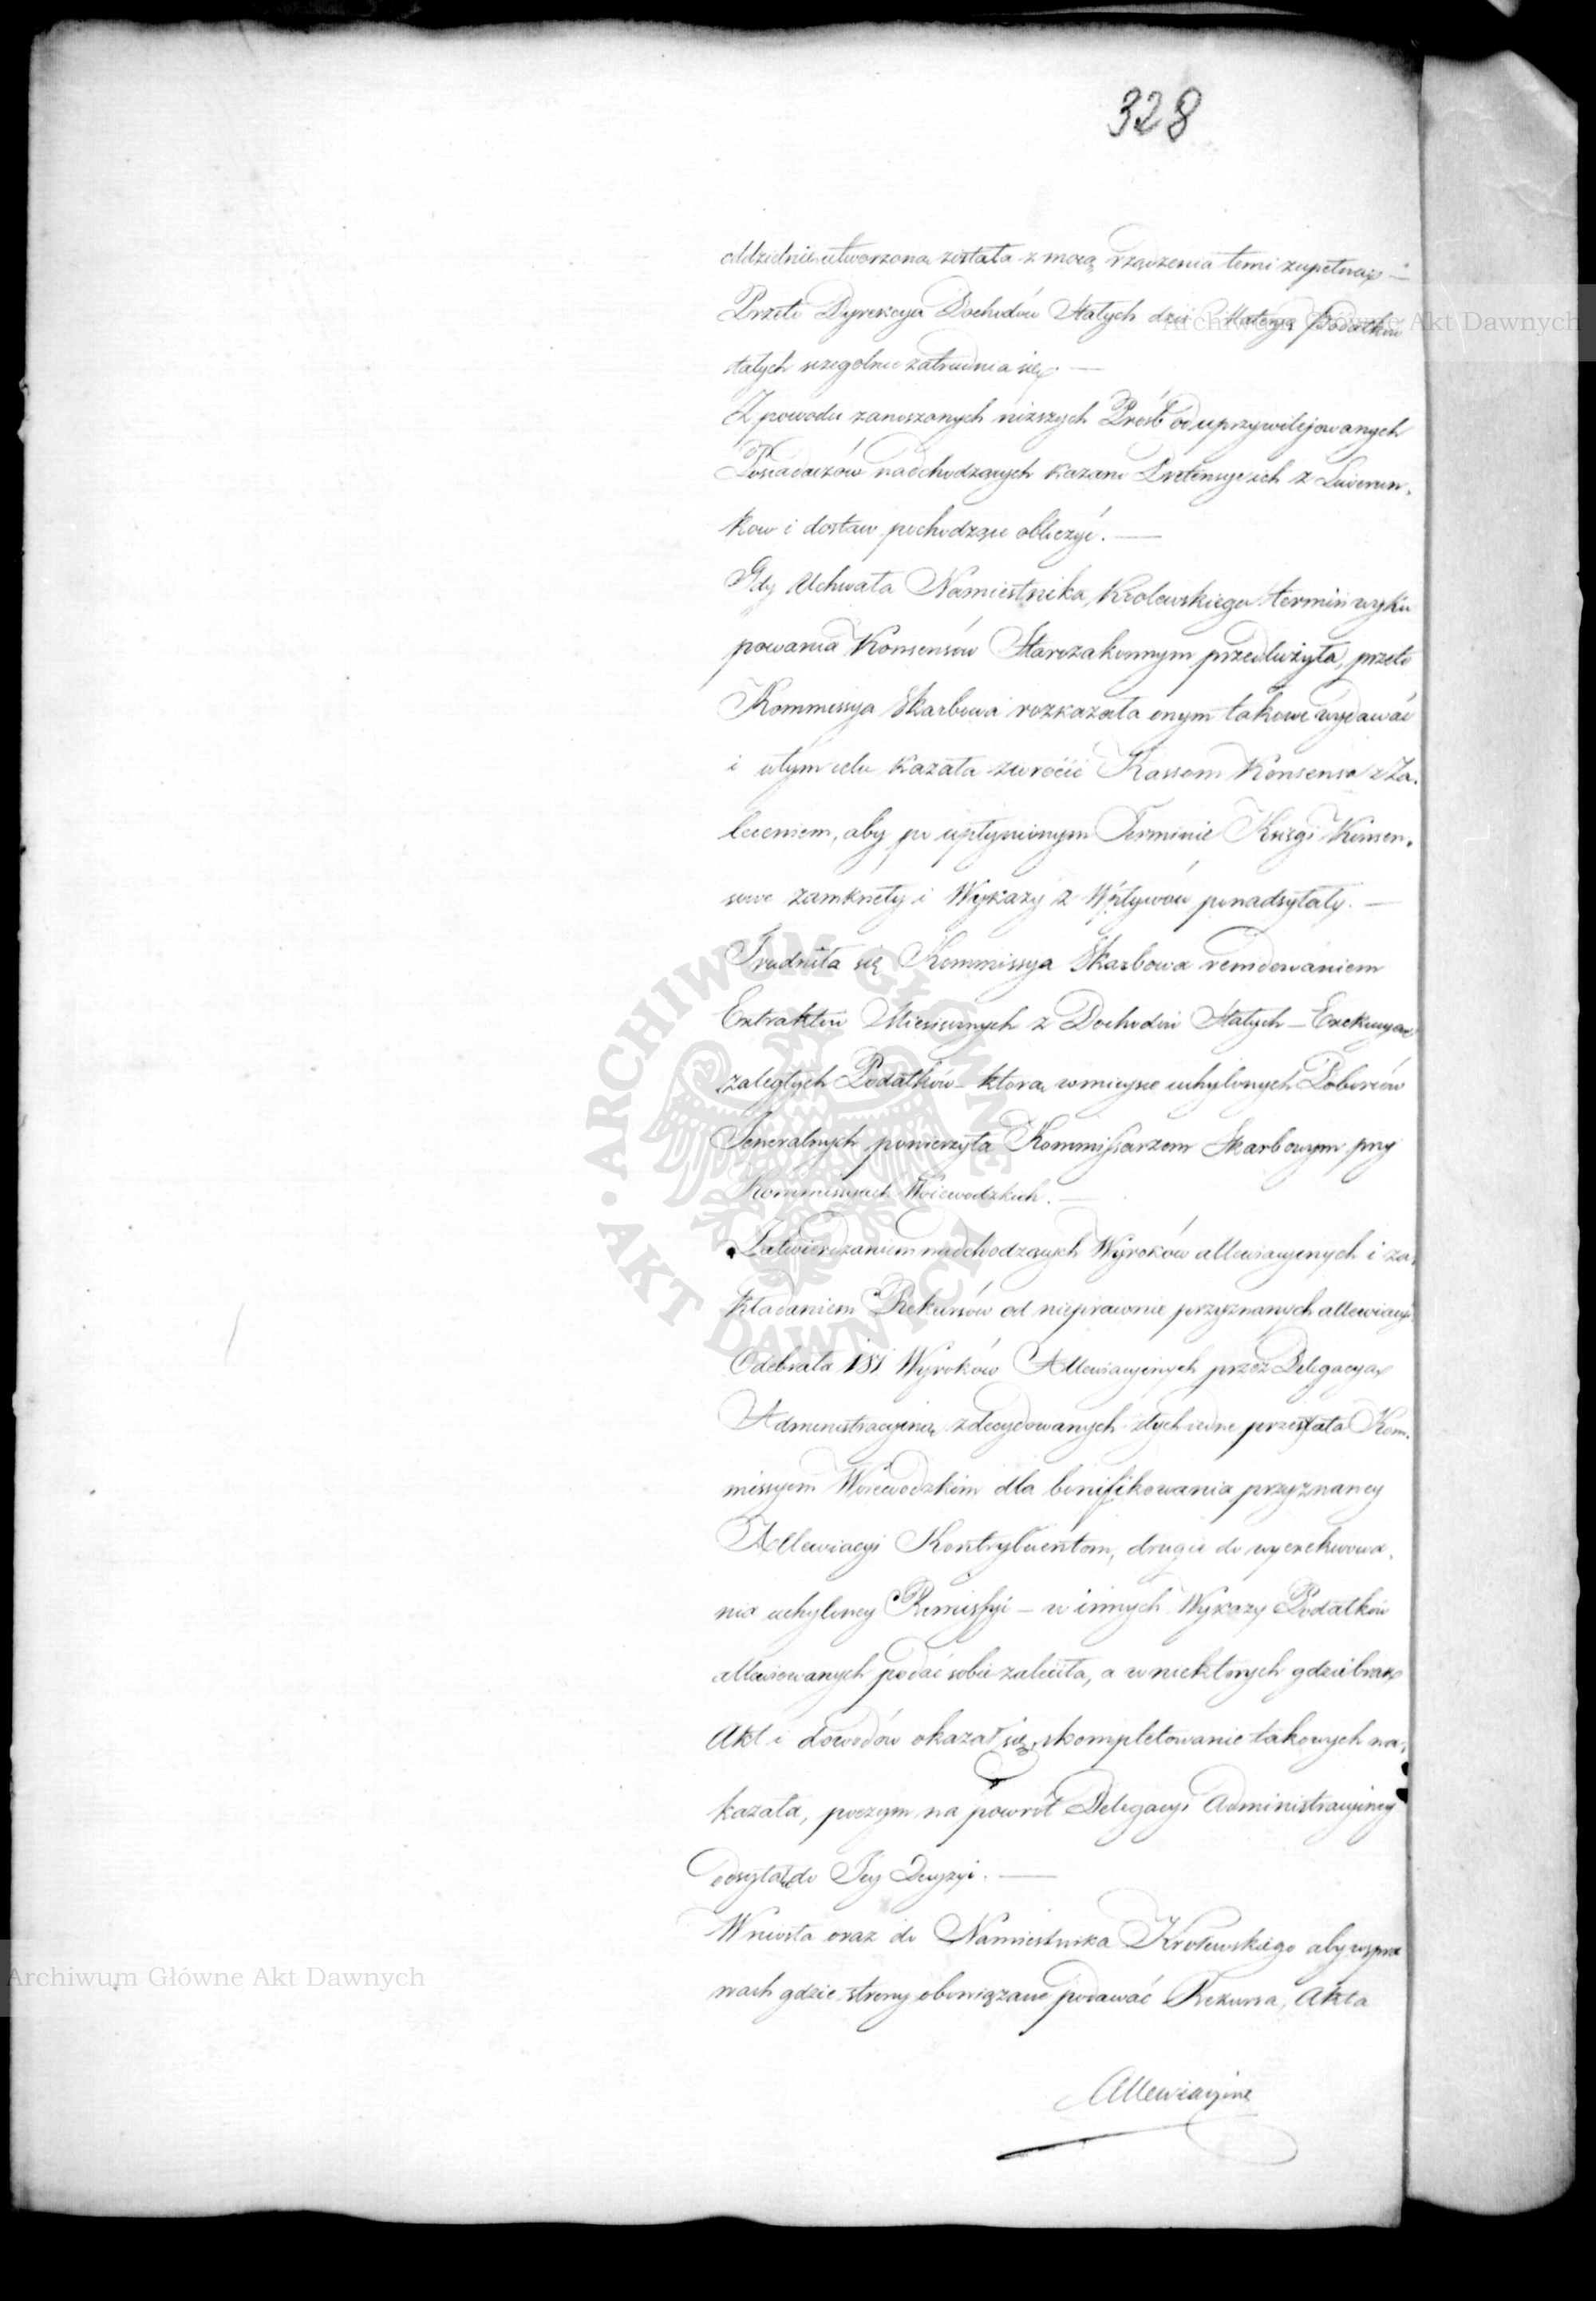 328
oddzielnie utworzona została z mocą rządzenia temi zupełnaie —
Przeto Dyrekcya Dochodów Stałych dziś Materyą Podatków
stałych szczególnie zatrudnia się. —
Z powodu zanoszonych niższych Próśb od uprzywilejowanych
Posiadaczów nadchodzących kazano Pretensye ich z Liwerun„
kow i dostaw pochodzące obliczyć. —
Gdy Uchwała Namiestnika Krolewskiego termin wyku
powania Konsensów Starozakonnym przedłużyła, przeto
Kommissya Skarbowa rozkazała onym takowe wydawać
i wtym celu kazała zwrócić Kassom Konsensa z Za„
leceniem, aby po upłynionym Terminie Księgi Konsen„
sowe zamknęły i Wykazy z Wpływów ponadsyłały. —
Trudniła się Kommissya Skarbowa rewidowaniem
Extraktów Miesięcznych z Dochodów Stałych — Exekucyą
zaległych Podatków — ktorą wmieysce uchylonych Poborców
Jeneralnych powierzyła Kommissarzom Skarbowym przy
Kommissyach Woiewodzkich. —
Zatwierdzaniem nadchodzących Wyroków allewiacyinych i za„
kładaniem Rekursów od nieprawnie przyznanych allewiacyi.
Odebrała 181 Wyroków Allewiacyinych przez Delegacyą
Administracyiną zdecydowanych ztych iedne przesłała Kom„
missyom Woiewodzkim dla bonifikowania przyznaney
Allewiacyi Kontrybuentom, drugie do wyexekwowa„
nia uchyloney Remissyi — w innych Wykazy Podatków
allewiowanych podać sobie zaleciła, a w niektorych gdzie brak
Akt i dowodów okazał się, skompletowanie takowych na„
kazała, poczym na powrót Delegacyi Administracyiney
odsyłała do Jey Decyzyi. —
Wniosła oraz do Namiestnika Krolewskiego aby wspra
wach gdzie strony obowiązane podawać Rekursa, Akta
Allewiacyine
Archiwum Główne Akt Dawnych
Archiwum Główne Akt Dawnych
ARCHIWUM GŁÓWNE · AKT DAWNYCH ·